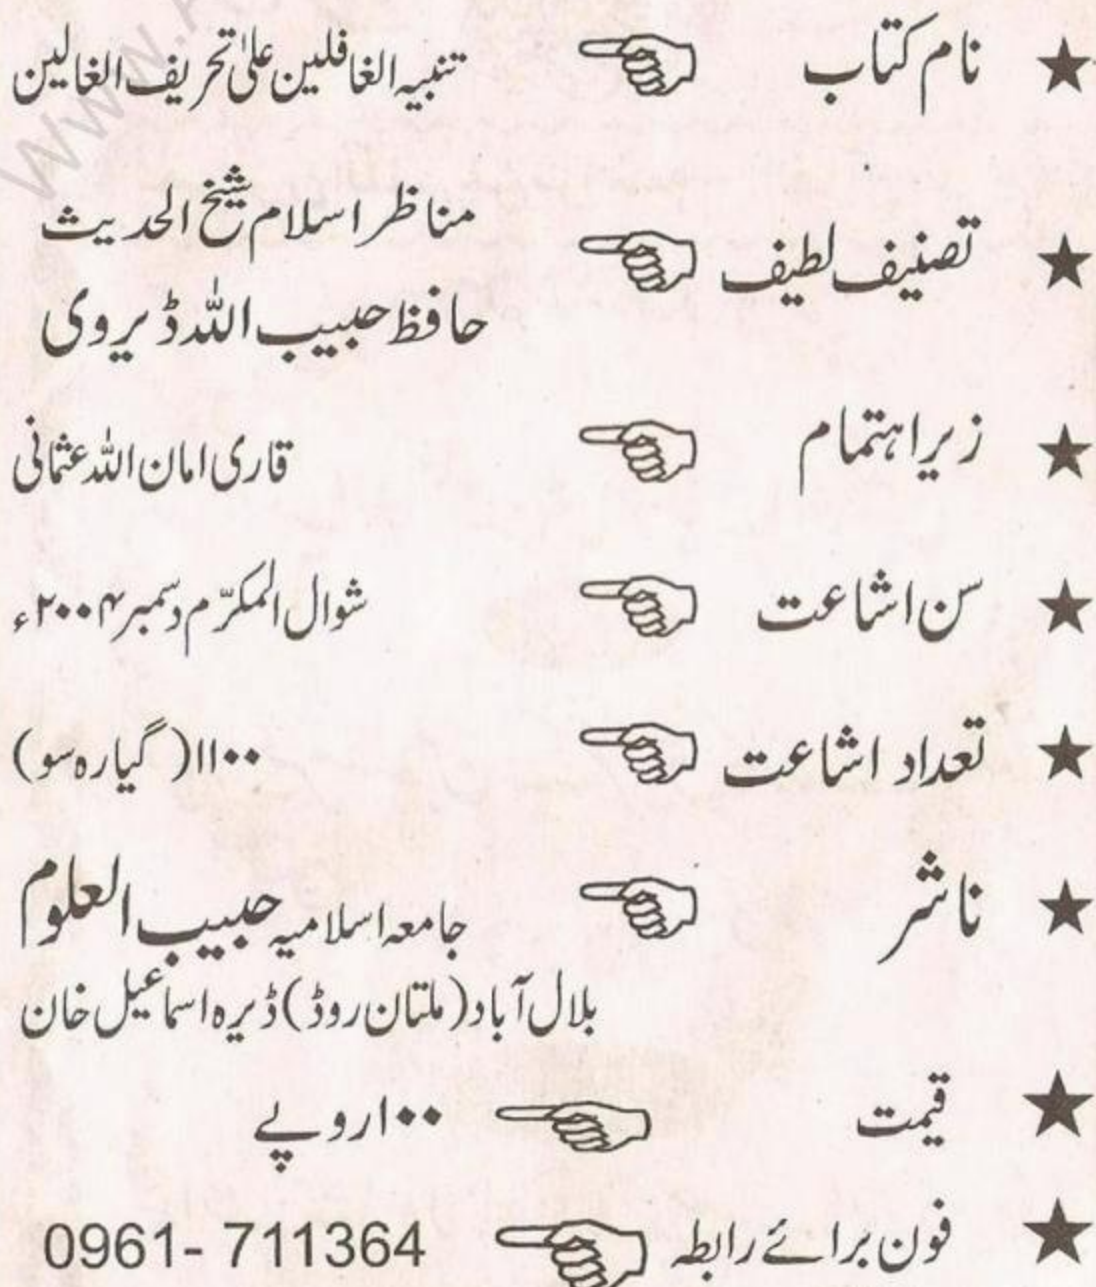 ★ نام کتاب ☜ تنبیہ الغافلین علیٰ تحریف الغالین
★ تصنیف لطیف ☜ مناظر اسلام شیخ الحدیث
حافظ حبیب اللہ ڈیروی
★ زیر اہتمام ☜ قاری امان اللہ عثمانی
★ سن اشاعت ☜ شوال المکرّم دسمبر ۲۰۰۴ء
★ تعداد اشاعت ☜ ۱۱۰۰ (گیارہ سو)
★ ناشر ☜ جامعہ اسلامیہ حبیب العلوم
بلال آباد (ملتان روڈ) ڈیرہ اسماعیل خان
★ قیمت ☜ ۱۰۰ روپے
★ فون برائے رابطہ ☜ 0961- 711364